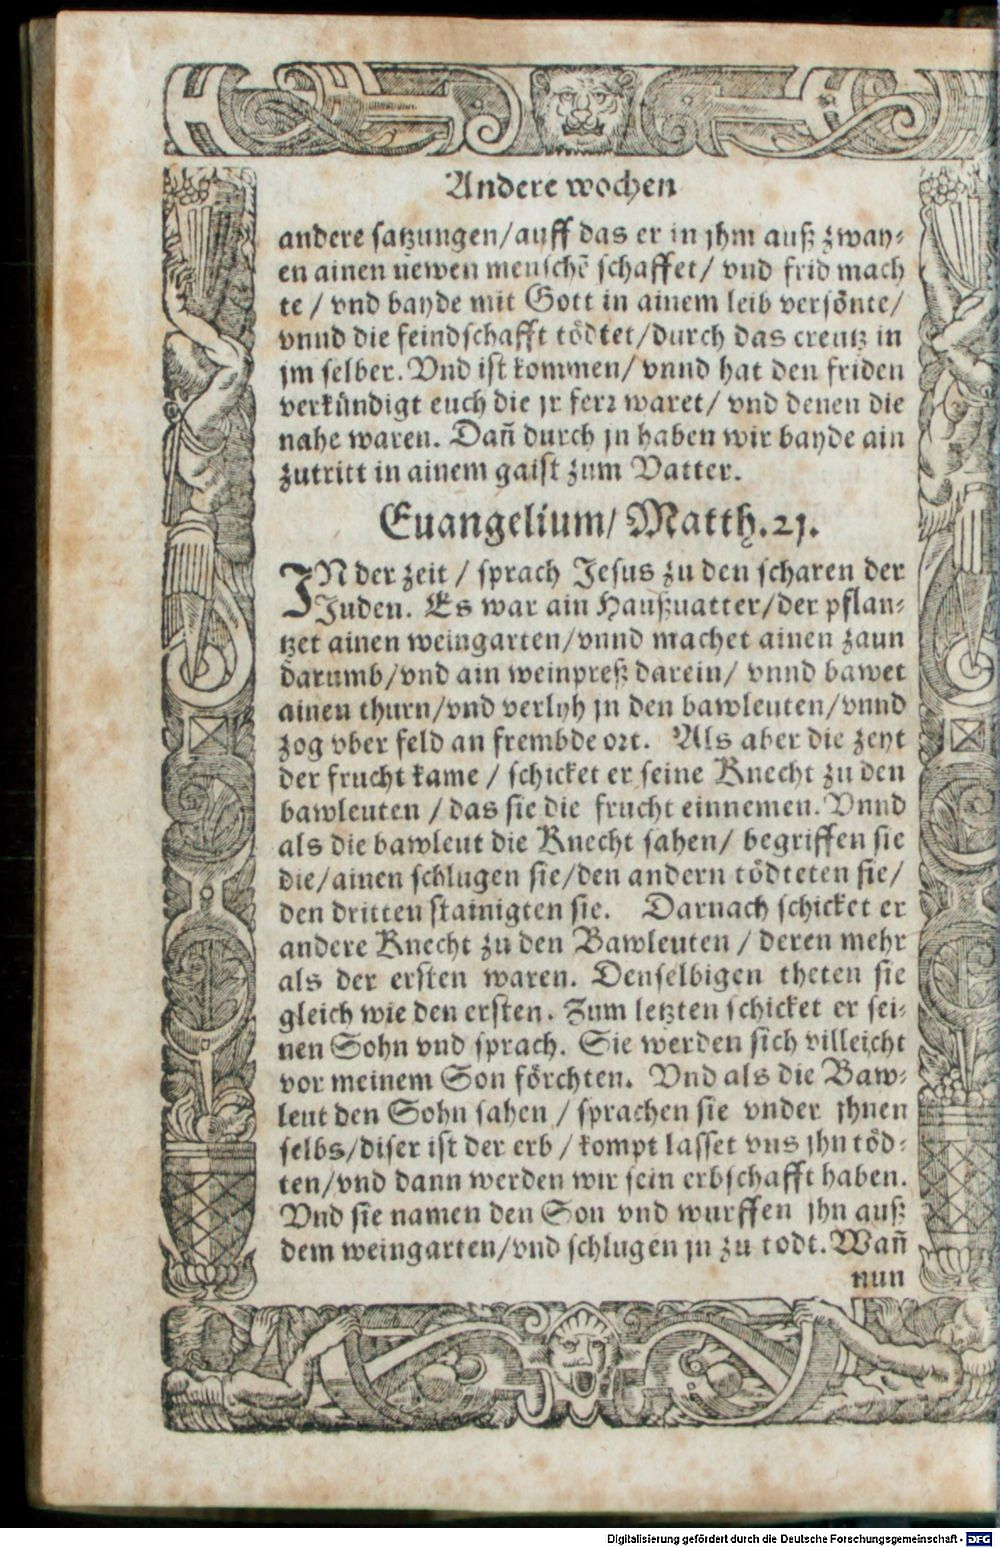 Andere wochen
andere satzungen/auff das er in jhm auß zway-
en ainen newen menschē schaffet/ vnd frid mach
te / vnd bayde mit Gott in ainem leib versönte/
vnnd die feindschafft tödtet/durch das creutz in
jm selber. Vnd ist kommen/ vnnd hat den friden
verkündigt euch die jr ferr waret/ vnd denen die
nahe waren. Dañ durch jn haben wir bayde ain
zutritt in ainem gaist zum Vatter.
Euangelium/ Matth. 21.
IN der zeit / sprach Jesus zu den scharen der
Juden. Es war ain Haußuatter/der pflan-
tzet ainen weingarten/vnnd machet ainen zaun
darumb/vnd ain weinpreß darein/ vnnd bawet
ainen thurn/vnd verlyh jn den bawleuten/vnnd
zog vber feld an frembde ort. Als aber die zeyt
der frucht kame / schicket er seine Knecht zu den
bawleuten / das sie die frucht einnemen. Vnnd
als die bawleut die Knecht sahen/ begriffen sie
die/ainen schlugen sie/den andern tödteten sie/
den dritten stainigten sie. Darnach schicket er
andere Knecht zu den Bawleuten / deren mehr
als der ersten waren. Denselbigen theten sie
gleich wie den ersten. Zum letzten schicket er sei-
nen Sohn vnd sprach. Sie werden sich villeicht
vor meinem Son förchten. Vnd als die Baw-
leut den Sohn sahen / sprachen sie vnder jhnen
selbs/diser ist der erb / kompt lasset vns jhn töd-
ten/vnd dann werden wir sein erbschafft haben.
Vnd sie namen den Son vnd wurffen jhn auß
dem weingarten/vnd schlugen jn zu todt. Wañ
nun
Digitalisierung gefördert durch die Deutsche Forschungsgemeinschaft - DFG